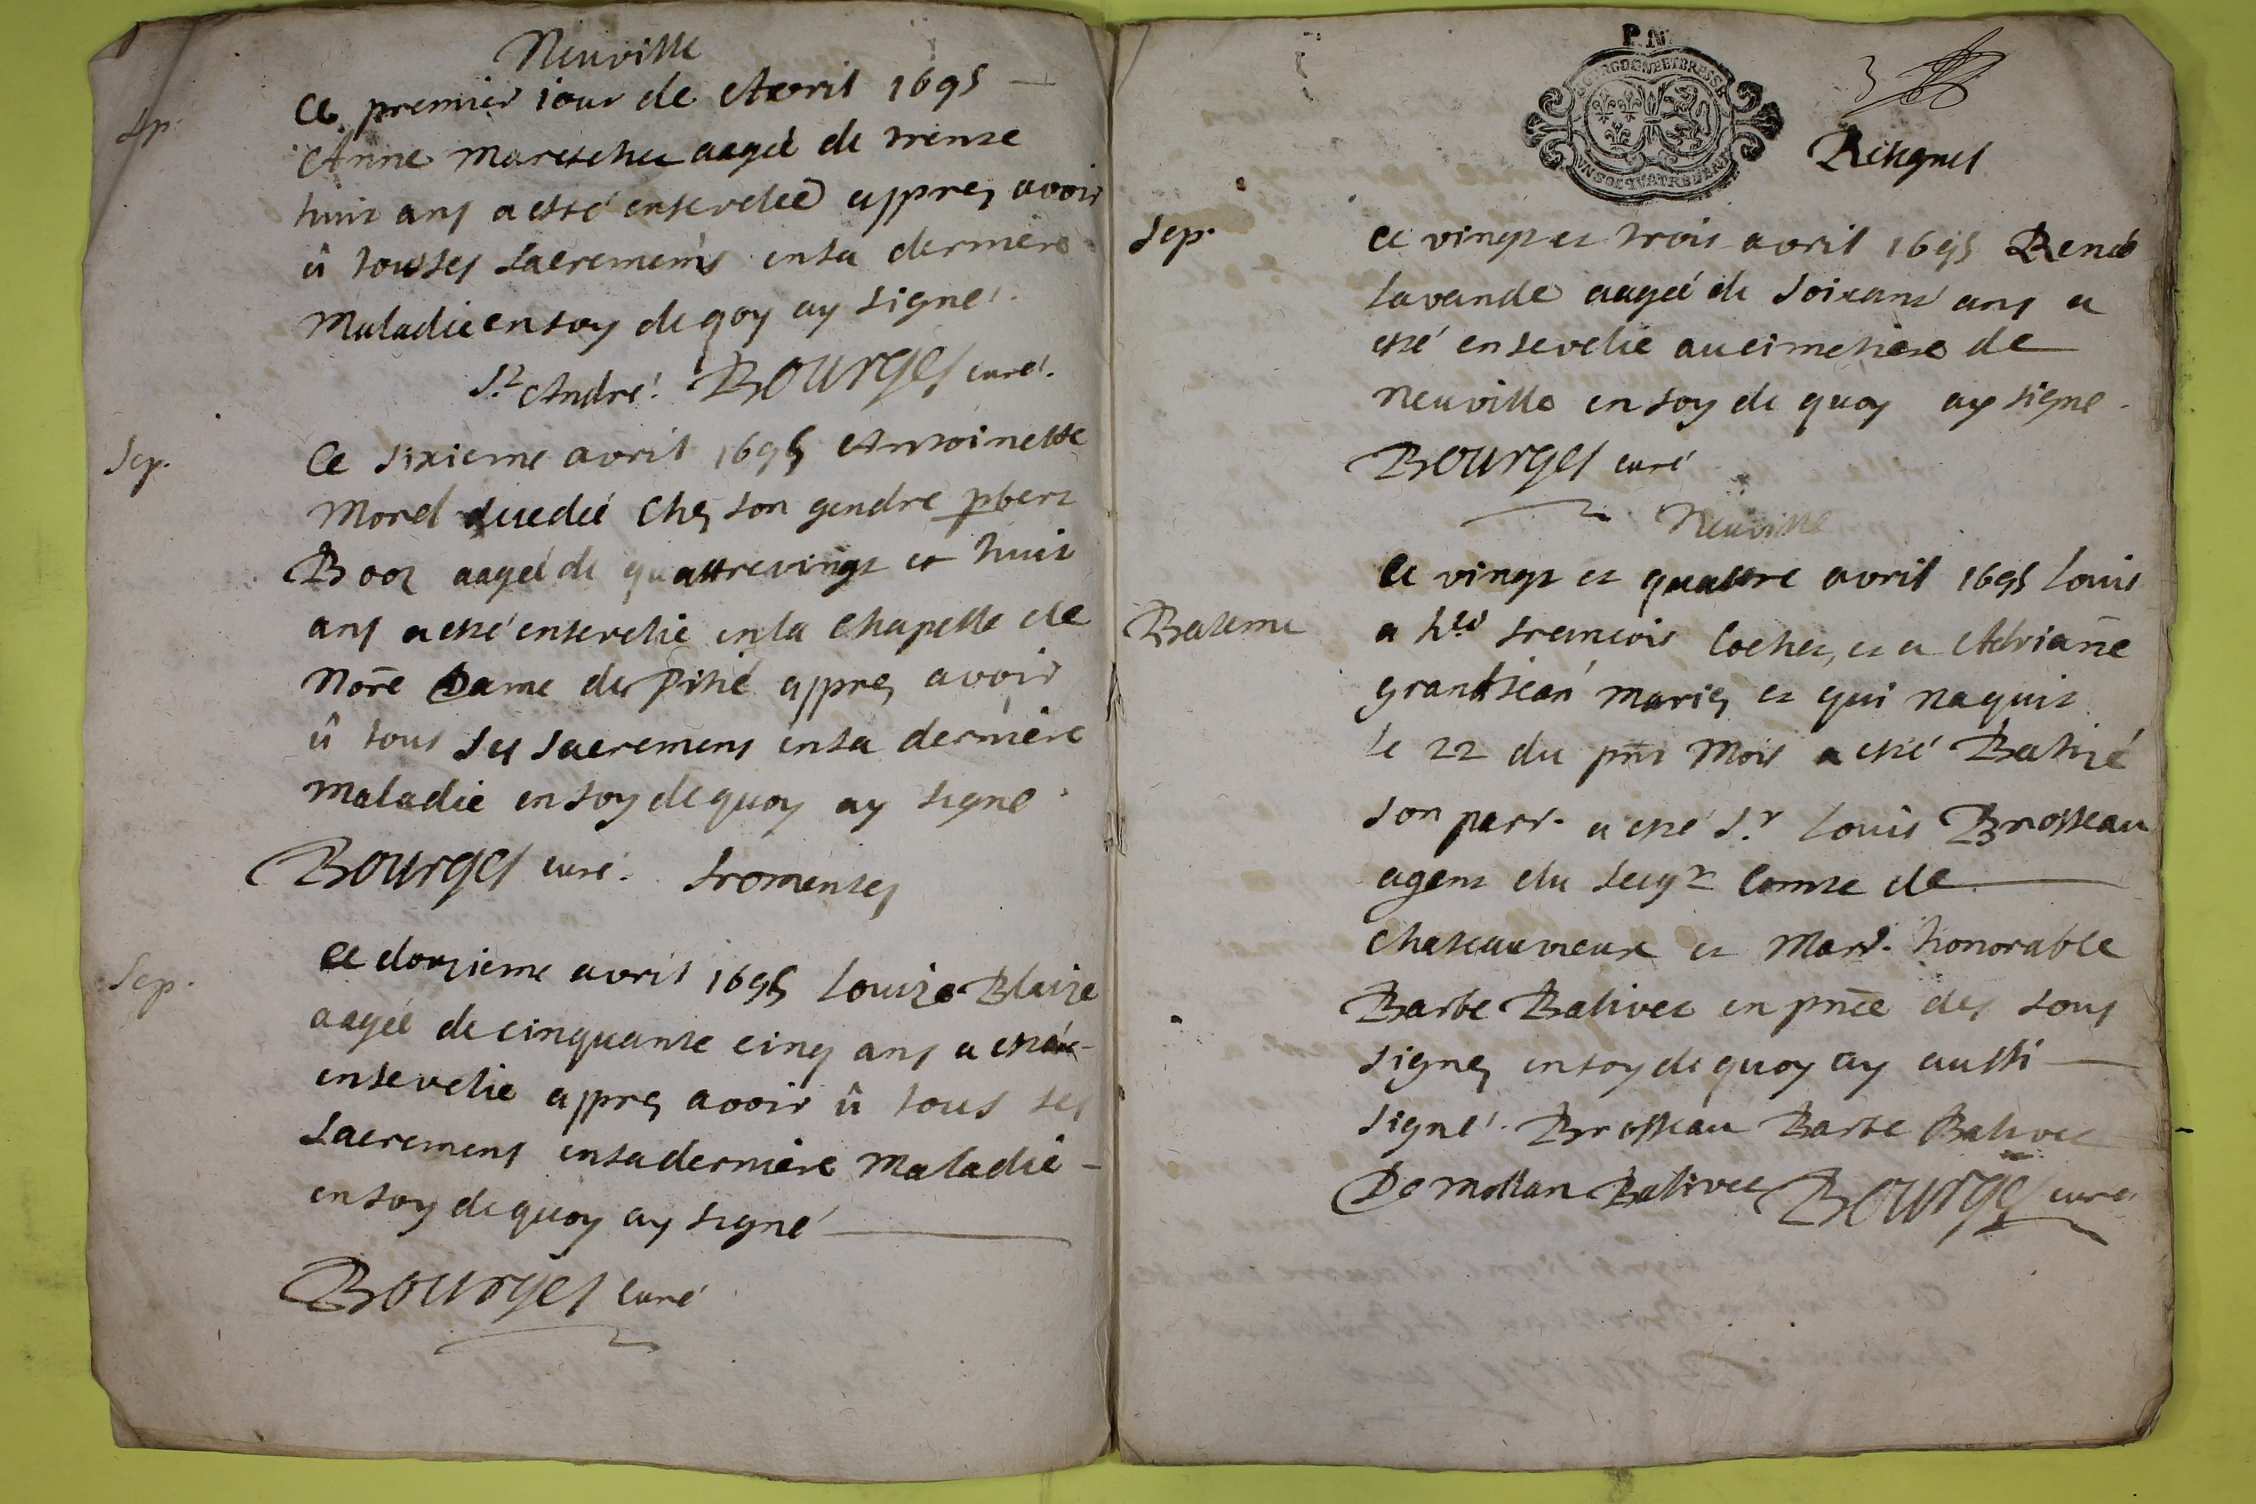 Neuville
Sep.
Ce premier iour de Avril 1695
Anne Mareschu aagée de trente
huit ans a esté ensevelie appres avoir
û tous ses Sacremens en sa derniere
Maladie en foy de qoy ay signé.
St André. BOURGES curé.
Sep.
Ce sixieme avril 1695 Antoinette
Morel decedée chez son gendre pbert
Booz aagée de quattrevingt et huit
ans a esté ensevelie en la chapelle de
Nore Dame de Pitié appres avoir
û tous ses sacremens en sa derniere
maladie en foy de quoy ay signé
BOURGES curé. fromentes
Sep.
Ce douzieme avril 1695 Louize Blaize
aagée de cinquante cinq ans a esté
ensevelie appres avoir û tous ses
Sacremens en sa derniere Maladie
en foy de quoy ay signé
BOURGES curé
P. N.
BOURGOGNE ET BRESSE
UN SOL QUATRE DEN
3
Retignes
Sep.
Ce vingt et trois avril 1695 Renée
Lavande aagée de soixant ans a
esté ensevelie au cimetiere de
Neuville en foy de quoy ay signe
BOURGES curé
Neuville
Bateme
Ce vingt et quattre avril 1695 Louis
a hle francois Cochet, et a Adriane
grandjean mariez et qui naquit
le 22 du pnt Mois a esté Batizé
son parr. a esté Sr Louis Brosseau
agent du seigr Comte de
chateauvieux et Marr. honorable
Barbe Balivet en pnce des sous
signez en foy de quoy ay aussi
signé. Brosseau Barbe Balivet
Demollan Balivet BOURGES curé